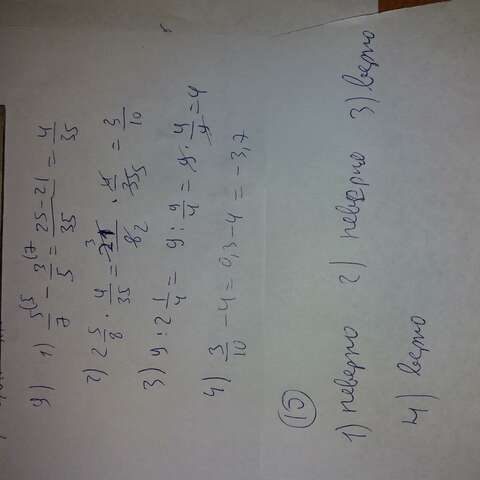 9) 1) 5(5/7 - 3(7/5 = 25-21/35 = 4/35
2) 2 5/8 · 4/35 = 21 3/8 2 · 4/35 5 = 3/10
3) 9 : 2 1/4 = 9 : 9/4 = 9 · 4/9 = 4
4) 3/10 - 4 = 0,3 - 4 = -3,7
10
1) неверно 2) неверно 3) верно
4) верно